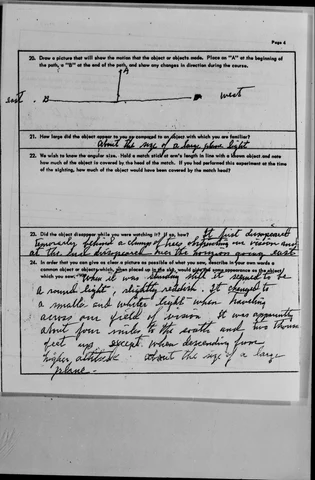 Page 4
20. Draw a picture that will show the motion that the object or objects made. Place an "A" at the beginning of
the path, a "B" at the end of the path, and show any changes in direction during the course.
A
east . B west
21. How large did the object appear to you as compared to an object with which you are familiar?
About the size of a large plane light
22. We wish to know the angular size. Hold a match stick at arm's length in line with a known object and note
how much of the object is covered by the head of the match. If you had performed this experiment at the time
of the sighting, how much of the object would have been covered by the match head?
23. Did the object disappear while you were watching it? If so, how? It first disappeared
temporarily behind a clump of trees obstructing our vision and
at the last disappeared over the horizon going east
24. In order that you can give as clear a picture as possible of what you saw, describe in your own words a
common object or objects which, when placed up in the sky, would give the same appearance as the object
which you saw. When it was standing still it seemed to be
a round light, slightly reddish. It changed to
a smaller and whiter light when traveling
across our field of vision. It was apparently
about four miles to the south and two thousand
feet up, except when descending from
higher altitude. about the size of a large
plane.